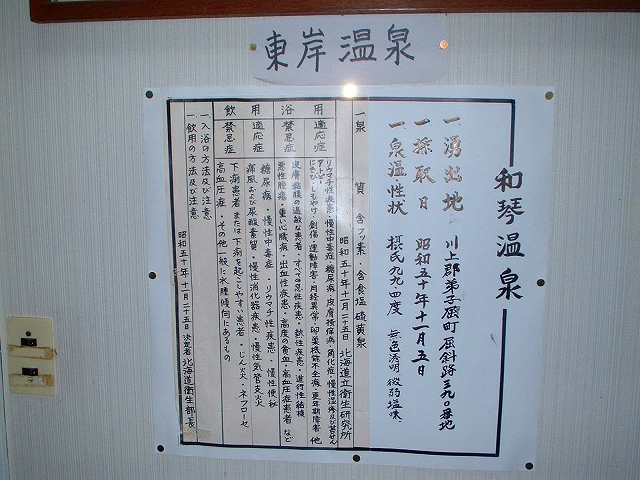 東岸温泉
和琴温泉
一湧出地 川上郡弟子屈町屈斜路三九〇番地
一採取日 昭和五十年十一月五日
一泉温性状 摂氏九九.四度 無色透明 微弱塩味
一泉質 含フッ素・含食塩 硫黄泉
昭和五十年十一月二十五日 北海道立衛生研究所
浴用 適応症 リウマチ性疾患・慢性中毒症・糖尿病・皮膚掻痒病・角化症・慢性湿疹及び苔せん
にきび・しもやけ・創傷・運動障害・月経異常・卵巣機能不全症・更年期障害 他
禁忌症 皮膚粘膜の過敏な患者・すべての急性疾患・熱性疾患・進行性結核
悪性腫瘍・重い心臓病・出血性疾患・高度の貧血・高血圧症患者 など
飲用 適応症 糖尿病・慢性中毒症・リウマチ性疾患・慢性便秘
痛風および尿酸素質・慢性消化器疾患・慢性気管支炎
禁忌症 下痢患者または下痢を起こしやすい患者・じん炎・ネフローゼ
高血圧症・その他一般に水腫傾向にあるもの
一入浴の方法及び注意
一飲用の方法及び注意
昭和五十年十一月二十五日 決定者 北海道衛生部長